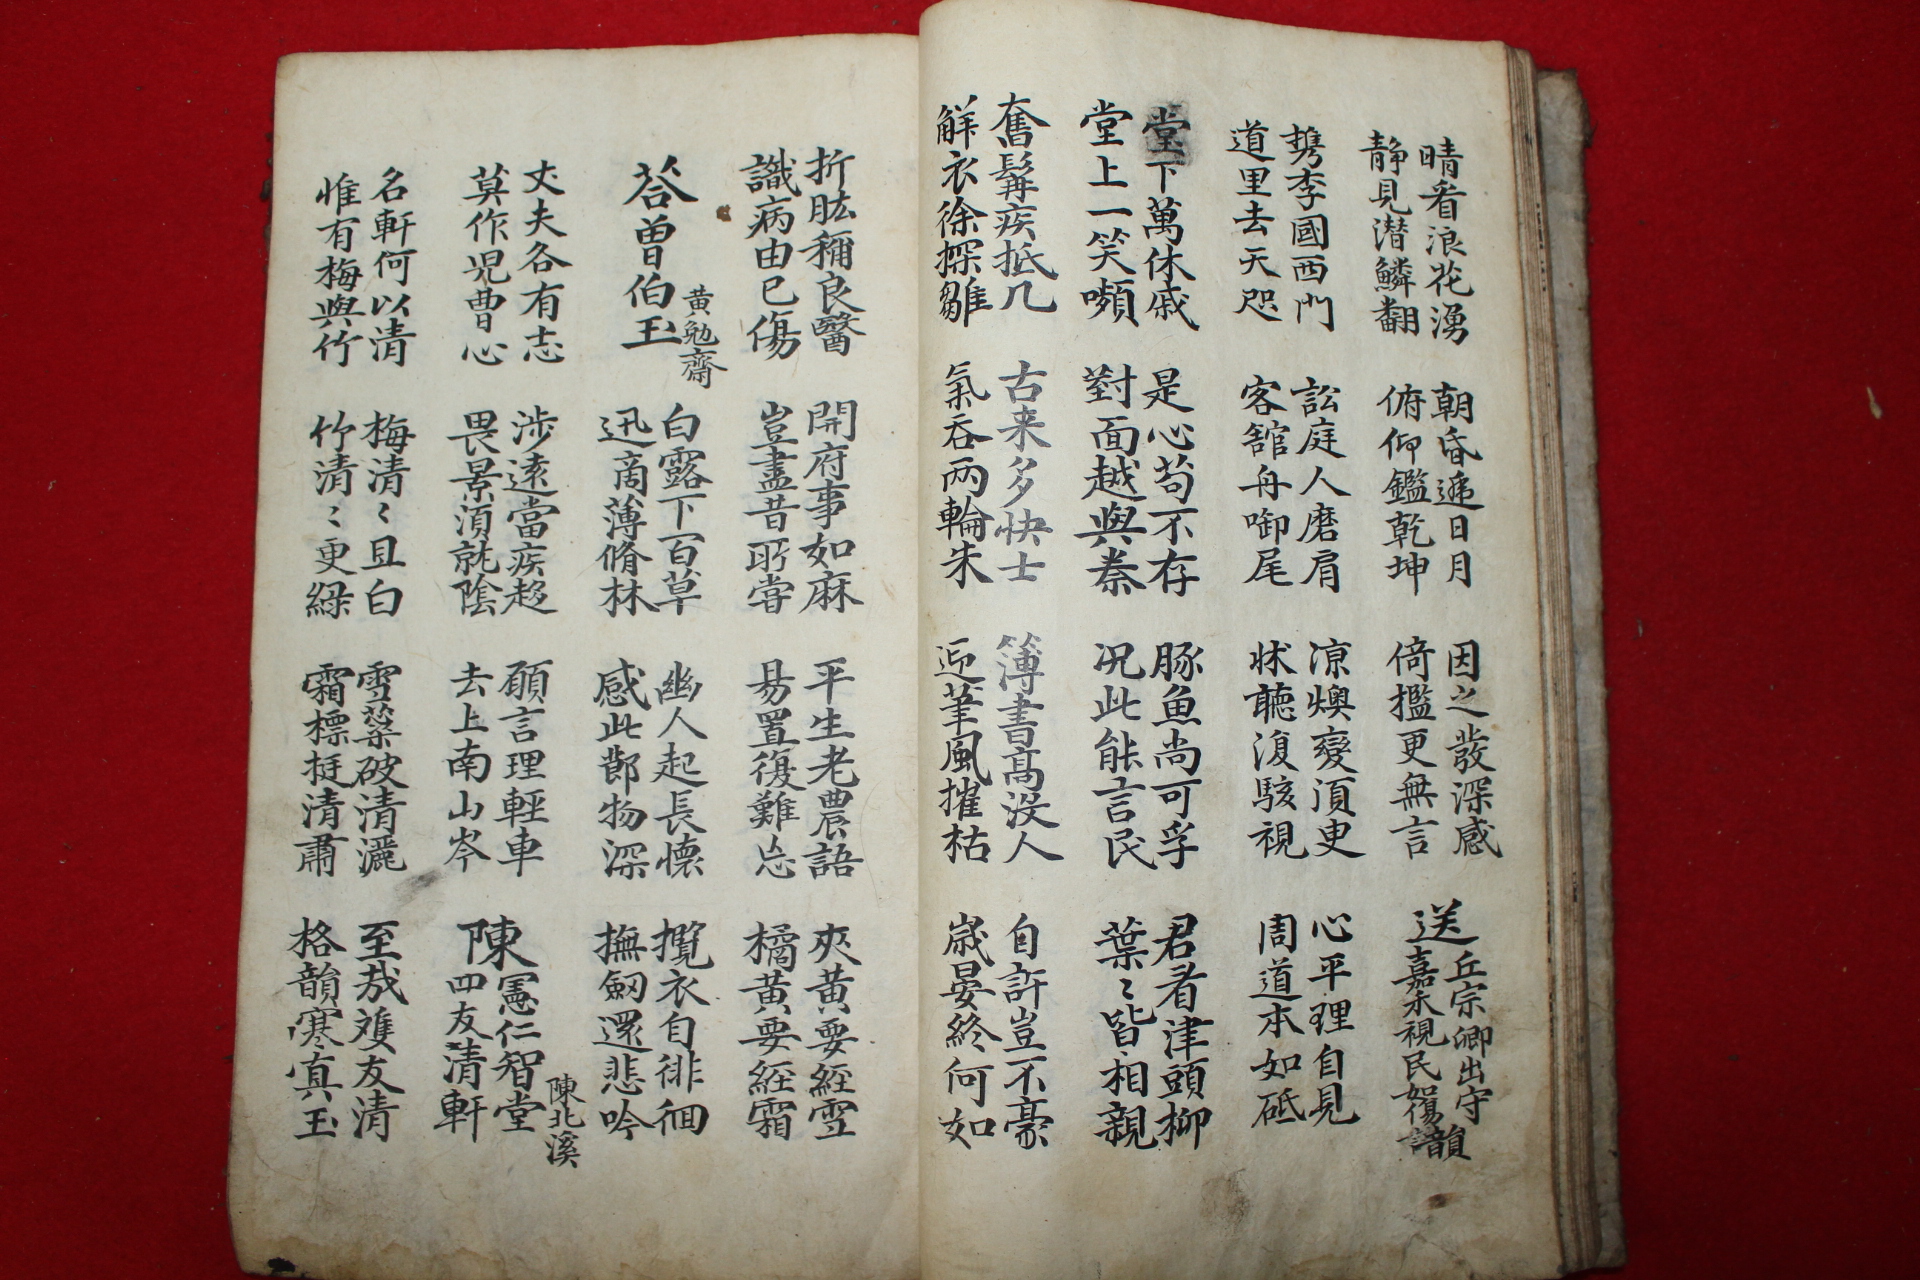 晴看浪花湧
静見潜鱗翻
朝昏遞日月
俯仰鑑乾坤
因之發深感
倚檻更無言
送丘宗卿出守
嘉禾視民如傷韻
携李國西門
道里去天咫
訟庭人磨肩
客舘舟啣尾
凉燠變湏臾
狀聽復駭視
心平理自見
周道本如砥
堂下萬休戚
堂上一笑嚬
是心苟不存
對面越與秦
豚魚尚可孚
况此能言民
君看津頭柳
葉〻皆相親
奮髯疾抵几
解衣徐探雛
古来多快士
氣吞两輪朱
簿書高没人
迎筆風摧枯
自許豈不豪
歲晏終何如
折肱稱良醫
識病由已傷
開府事如麻
豈盡昔所嘗
平生老農語
易置復難忘
夾黄要經雪
橘黄要經霜
答曾伯玉 黄勉齋
白露下百草
迅商薄脩林
幽人起長懐
感此節物深
攬衣自徘徊
撫劒還悲吟
丈夫各有志
莫作児曹心
涉遠當疾趍
畏景湏就陰
願言理輕車
去上南山岑
陳憲仁智堂
四友清軒 陳北溪
名軒何以清
惟有梅與竹
梅清〻且白
竹清〻更綠
雪蘂破清灑
霜標挺清肅
至哉雙友清
格韻寒真玉